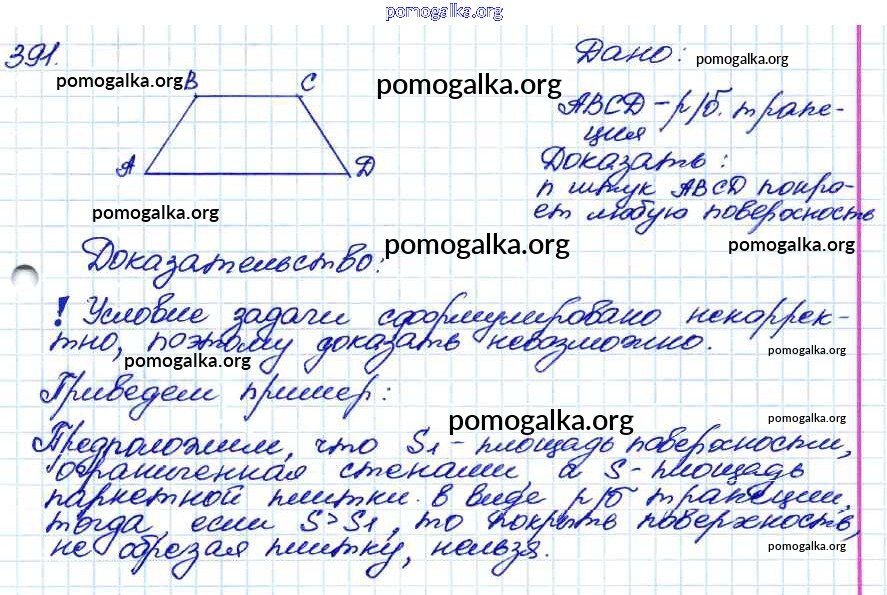 pomogalka.org
391.
Дано: pomogalka.org
pomogalka.org B C pomogalka.org
ABCD - р/б. трапе-
ция
A D
Доказать:
n штук ABCD покро-
ет любую поверхность
pomogalka.org
Доказательство. pomogalka.org pomogalka.org
! Условие задачи сформулировано некоррек-
тно, поэтому доказать невозможно. pomogalka.org
pomogalka.org
Приведем пример:
pomogalka.org pomogalka.org
Предположим, что S1 - площадь поверхности,
ограниченная стенами, а S - площадь
паркетной плитки в виде р/б трапеции,
тогда, если S > S1, то покрыть поверхность,
не обрезая плитку, нельзя. pomogalka.org